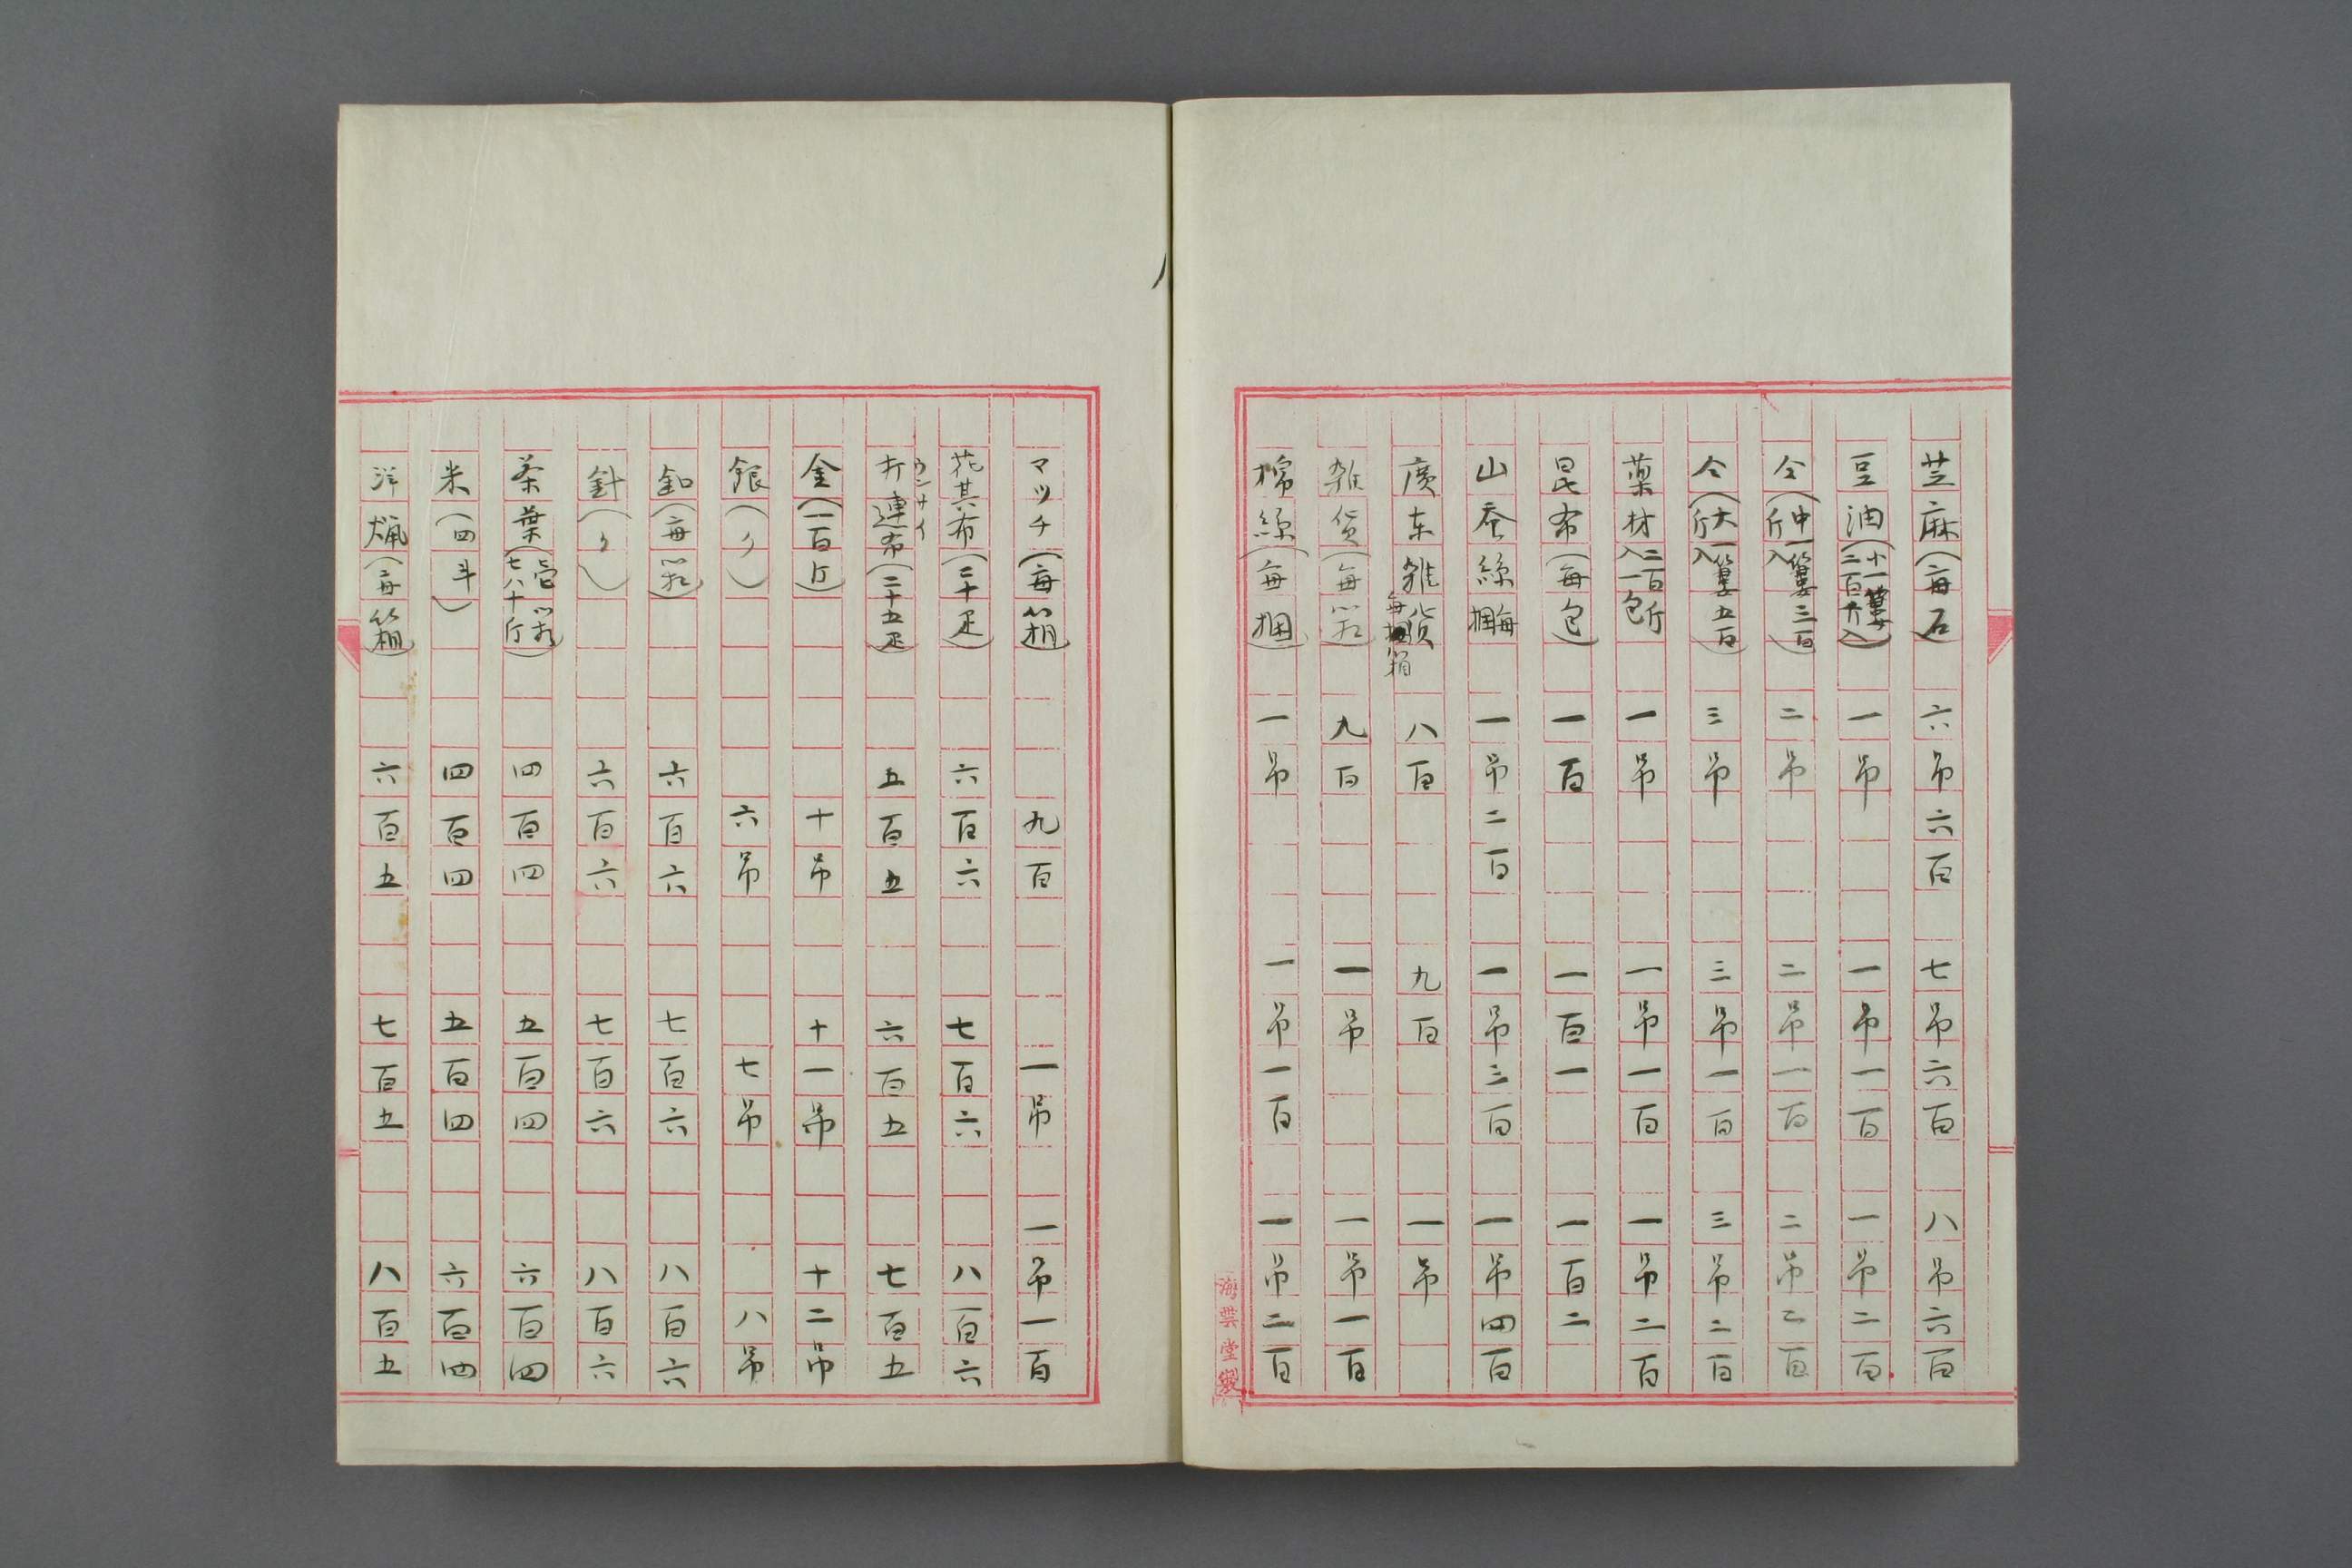 芝麻(毎石) 六吊六百 七吊六百 八吊六百
豆油(小一簍二百斤入) 一吊 一吊一百 一吊二百
仝(中一簍三百斤入) 二吊 二吊一百 二吊二百
仝(大一簍五百斤入) 三吊 三吊一百 三吊二百
薬材二百斤入一包 一吊 一吊一百 一吊二百
昆布(毎包) 一百 一百一 一百二
山蚕絲毎捆 一吊二百 一吊三百 一吊四百
廣东雑貨毎箱 八百 九百 一吊
雑貨(毎箱) 九百 一吊 一吊一百
棉綜(毎捆) 一吊 一吊一百 一吊二百
海雲堂製
マツチ(毎箱) 九百 一吊 一吊一百
花其布(二十疋) 六百六 七百六 八百六
ウンサイ
打連布(二十五疋) 五百五 六百五 七百五
金(一百斤) 十吊 十一吊 十二吊
銀(〃) 六吊 七吊 八吊
釦(毎箱) 六百六 七百六 八百六
針(〃) 六百六 七百六 八百六
茶葉(壱箱七八十斤) 四百四 五百四 六百四
米(四斗) 四百四 五百四 六百四
洋蝋(毎箱) 六百五 七百五 八百五